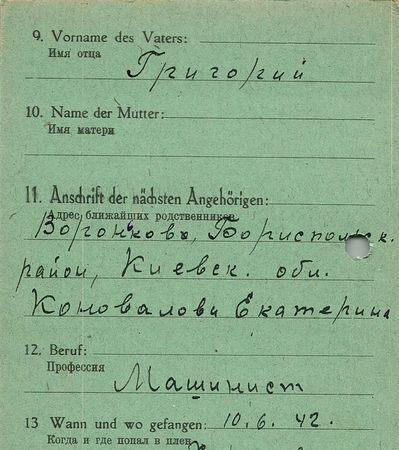 9. Vorname des Vaters:
Имя отца
Григорий
10. Name der Mutter:
Имя матери
11. Anschrift der nächsten Angehörigen:
Адрес ближайших родственников
Воронково, Бориспольск.
район, Киевск. обл.
Коновалови Екатерина
12. Beruf:
Профессия
Машинист
13 Wann und wo gefangen: 10. 6. 42.
Когда и где попал в плен